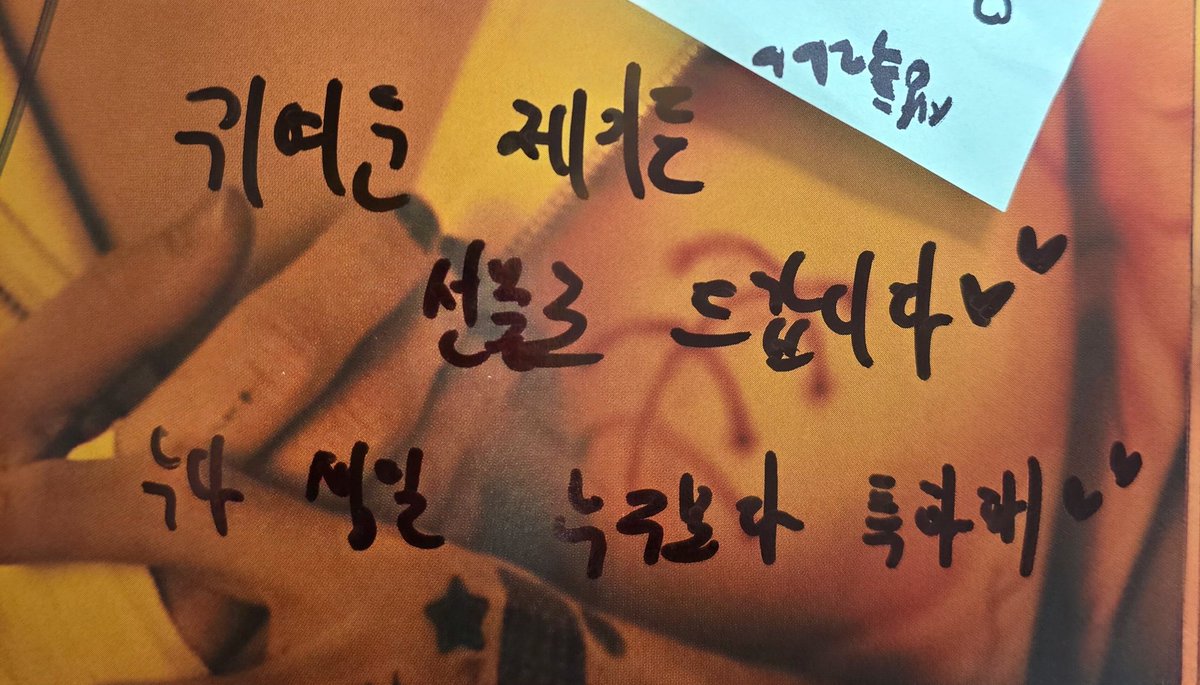 귀여운 제키는
선물로 드립니다♥♥
누나 생일 누구보다 축하해♥♥